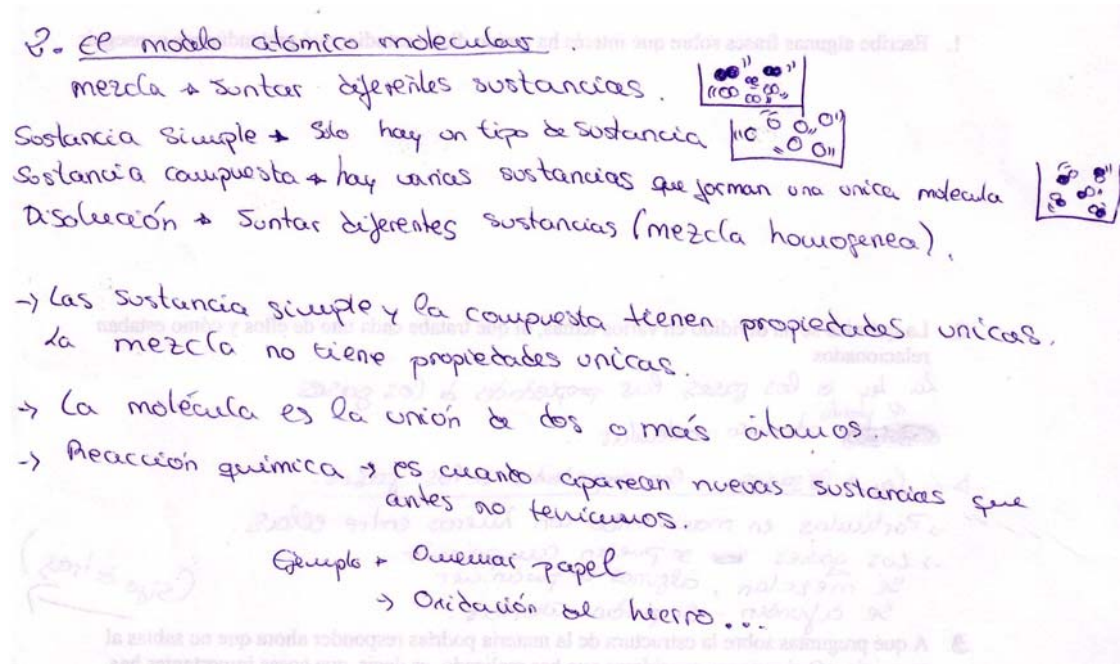 3. El modelo atómico molecular.
mezcla → Juntar diferentes sustancias.
Sustancia simple → Solo hay un tipo de sustancia
Sustancia compuesta → hay varias sustancias que forman una unica molecula
Disolución → Juntar diferentes sustancias (mezcla homogenea).
→ Las sustancia simple y la compuesta tienen propiedades unicas.
La mezcla no tiene propiedades unicas.
→ La molécula es la unión de dos o más átomos.
→ Reacción química → es cuando aparecen nuevas sustancias que
antes no teníamos.
Ejemplo → Quemar papel
→ Oxidación del hierro...